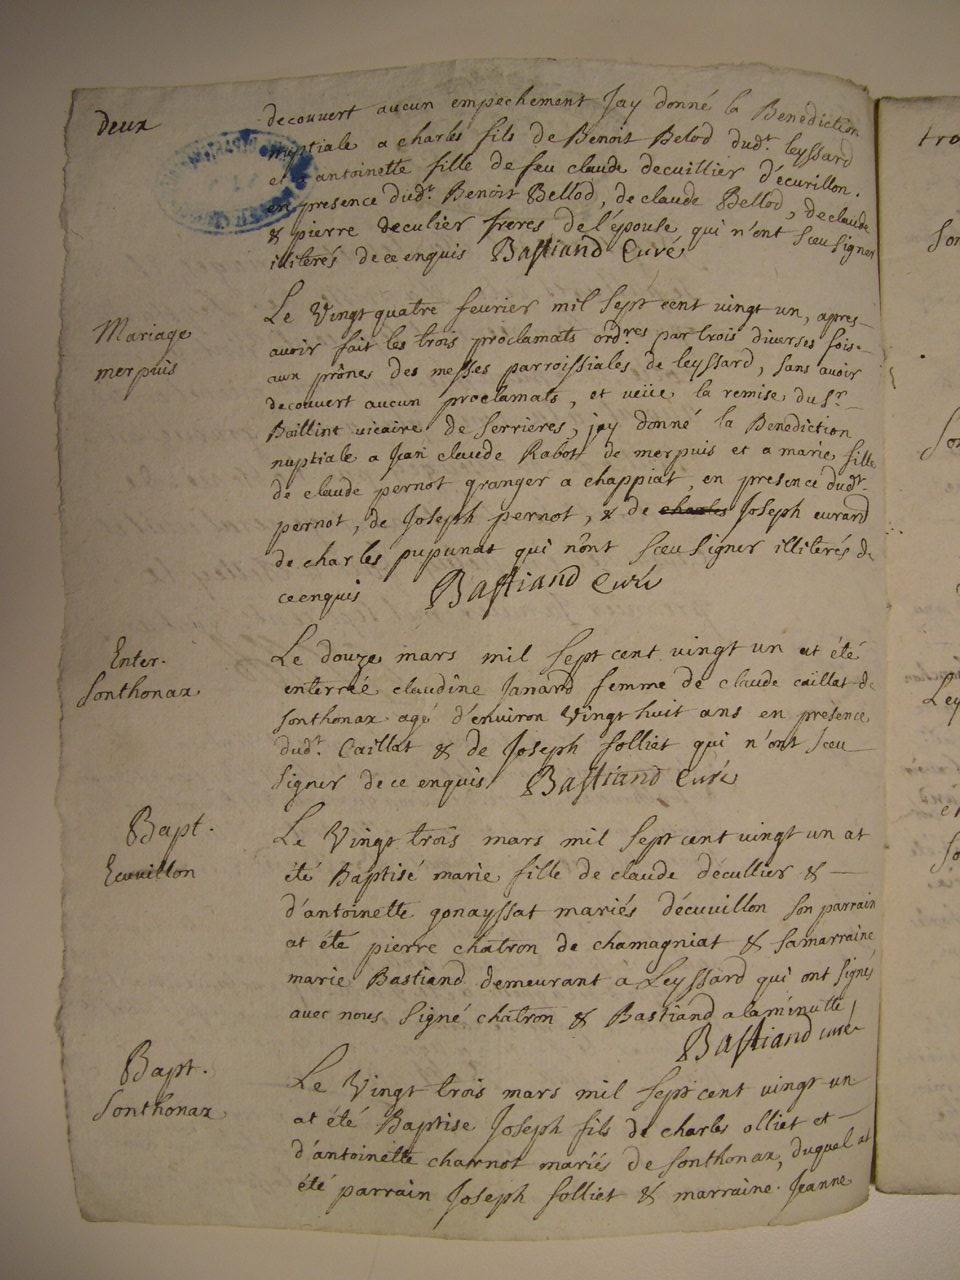 Deux
decouvert aucun empechement Jay donné la Benediction
nuptiale a charles fils de Benoit Belod dudt. leyssard
et a antoinette fille de feu claude decuillier d'écuvillon.
en presence dudt. Benoit Bellod, de claude Bellod, de claude
& pierre decuiier freres de l'épouse qui n'ont sceu signer
illiterés de ce enquis Bastiand Curé
Mariage
merpuis
Le Vingt quatre fevrier mil sept cent vingt un, apres
avoir fait les trois proclamats ordres. par trois diverses fois
aux prônes des messes parroissiales de leyssard, sans avoir
decouvert aucun proclamats, et veüe la remise du Sr.
Baillint vicaire de serrieres, jay donné la Benediction
nuptiale a Jean claude Rabot de merpuis et a marie fille
de claude pernot granger a chappiat, en presence dudt.
pernot, de Joseph pernot, & de charles Joseph eurard
de charles pupunat qui n'ont sceu signer illiterés de
ce enquis Bastiand Curé
Enter.
sonthonax
Le douze mars mil sept cent vingt un at été
enterrée claudine Janard femme de claude caillat de
sonthonax agé d'environ vingt huit ans en presence
dudt. Caillat & de Joseph solliet qui n'ont sceu
signer de ce enquis Bastiand Curé
Bapt.
Ecuvillon
Le Vingt trois mars mil sept cent vingt un at
été Baptisé marie fille de claude décullier &
d'antoinette gonayssat mariés décuvillon son parrain
at été pierre chatron de chamagniat & sa marraine
marie Bastiand demeurant à Leyssard qui ont signés
avec nous signé chatron & Bastiand a la minutte
Bastiand curé
Bapt.
sonthonax
Le Vingt trois mars mil sept cent vingt un
at été Baptise Joseph fils de charles olliet et
d'antoinette charnot mariés de sonthonax, duquel at
été parrain Joseph solliet & marraine Jeanne